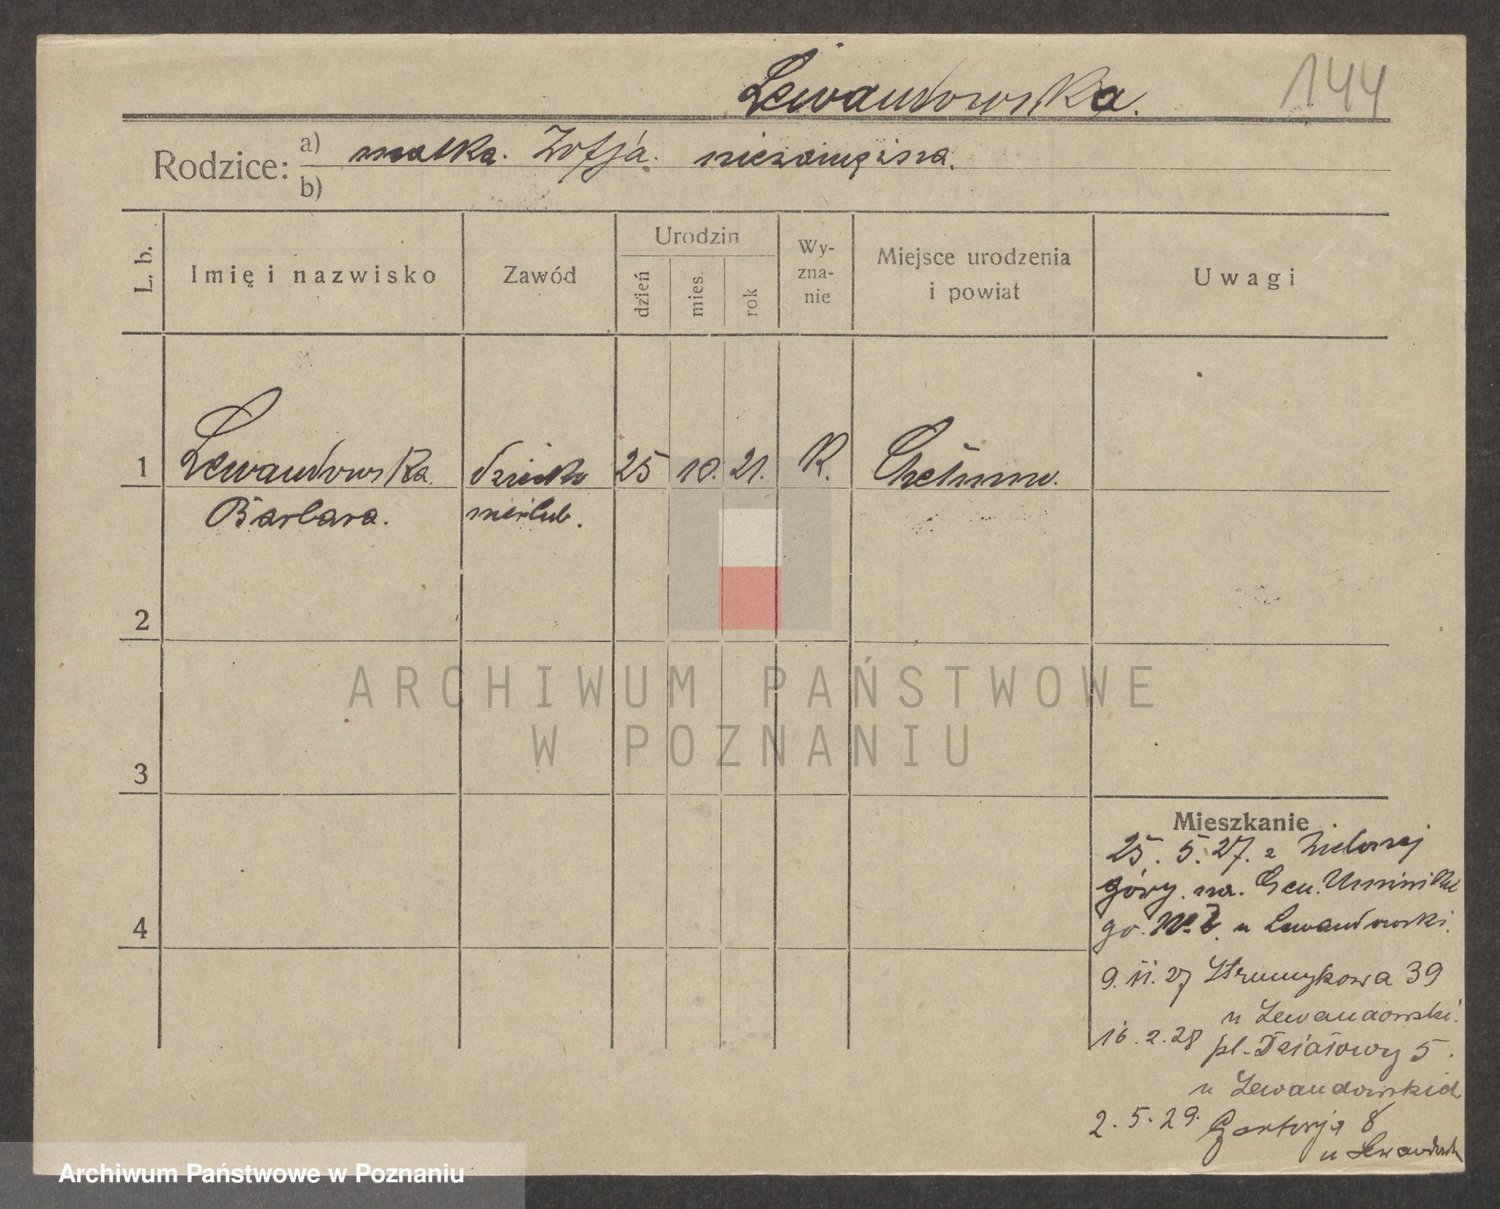 Lewandowska.
144
Rodzice: a) matka. Zofja. niezamężna.
b)
L. b.
Imię i nazwisko
Zawód
Urodzin
dzień
mies.
rok
Wy-
zna-
nie
Miejsce urodzenia
i powiat
Uwagi
1 Lewandowska. dziecko 25 10. 21. R. Chełmno.
Barbara. nieślub.
2
3
4
Mieszkanie
25. 5. 27. z Zielonej
góry. na. Gen. Umińskie
go. No u Lewandowski.
9. 11. 27 Strumykowa 39
u Lewandowski.
16. 2. 28 pl. Działowy 5.
u Lewandowskich
2. 5. 29. 8
u
ARCHIWUM PAŃSTWOWE
W POZNANIU
Archiwum Państwowe w Poznaniu